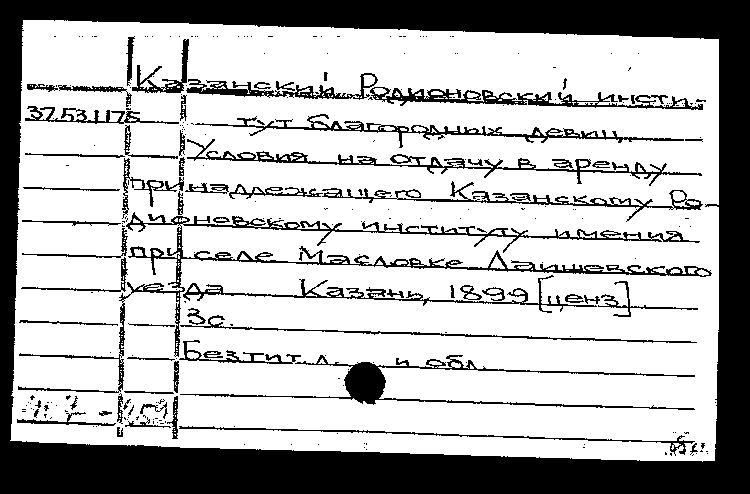 Казанский Родионовский инсти-
37.53.1175 тут благородных девиц.
Условия на отдачу в аренду
принадлежащего Казанскому Ро-
дионовскому институту имения
при селе Масловке Лаишевского
уезда Казань, 1899 [ценз.]
3с.
Без тит. л. и обл.